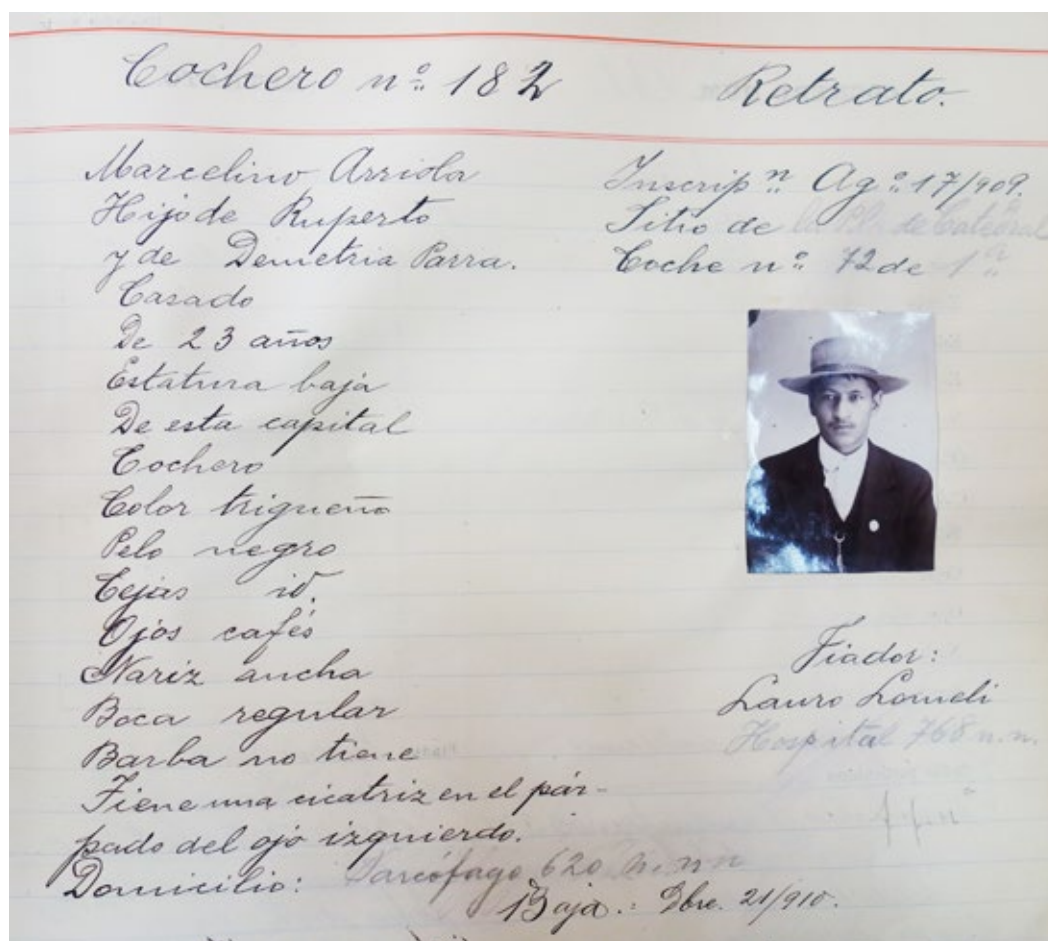 Cochero nº 182
Retrato.
Marcelino Arriola
Hijo de Ruperto
y de Demetria Parra.
Casado
De 23 años
Estatura baja
De esta capital
Cochero
Color trigueño
Pelo negro
Cejas id.
Ojos cafés
Nariz ancha
Boca regular
Barba no tiene
Tiene una cicatriz en el pár-
pado del ojo izquierdo.
Domicilio: Sarcófago 620
Baja.: Dbre. 21/910.
Inscripn Agº 17/909.
Sitio de la de Catedral
Coche nº 72 de 1ª
Fiador:
Lauro Lomeli
Hospital 768 n.n.